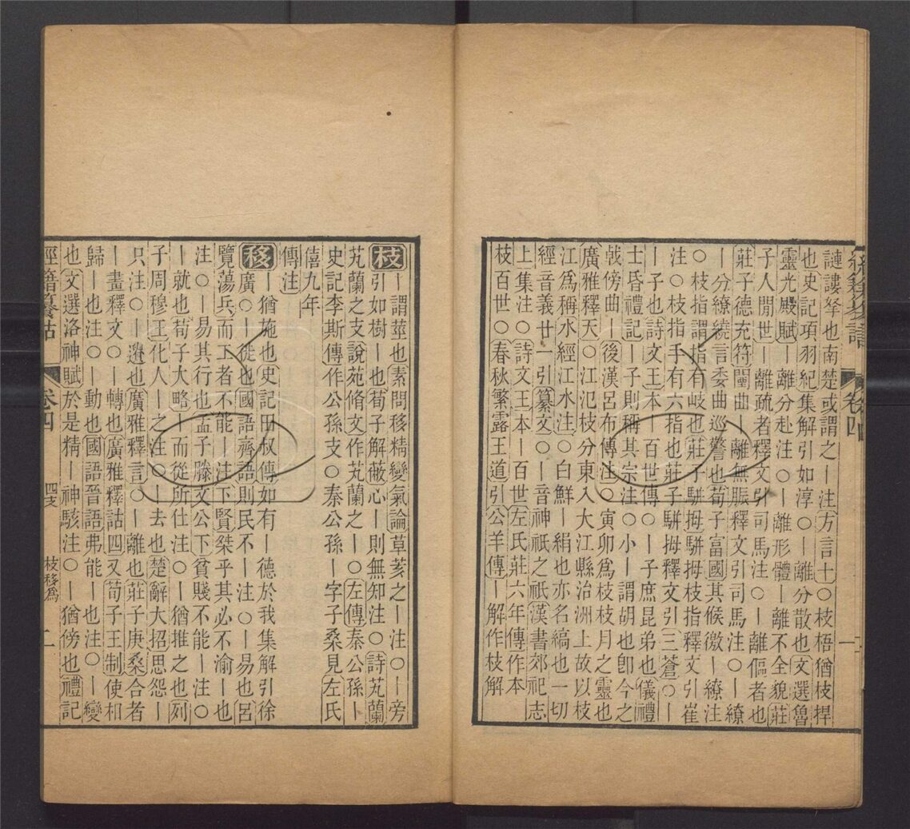 謰謱拏也南楚或謂之｜注方言十○枝梧猶枝捍
也史記項羽紀集解引如淳○｜離分散也文選魯
靈光殿賦｜離分赴注○｜離形體｜離不全貌莊
子人間世｜離疏者釋文引司馬注○｜離傴者也
莊子德充符闉曲｜離無脤釋文引司馬注○｜繚
｜分繚繞言委曲巡警也荀子富國其候徼｜繚注
○枝指謂指有岐也莊子駢拇駢拇枝指釋文引崔
注○枝指手有六指也莊子駢拇釋文引三蒼○｜
｜子也詩文王本｜百世傳○｜子庶昆弟也儀禮
士昏禮記｜子則稱其宗注○小｜謂胡也卽今之
戟傍曲｜後漢呂布傳注○寅卯爲枝枝月之靈也
廣雅釋天○江氾枝分東入大江縣治洲上故以枝
江爲稱水經江水注○白鮮｜絹也亦名縞也一切
經音義廿一引纂文○｜音神祇之祇漢書郊祀志
上集注○詩文王本｜百世左氏莊六年傳作本
枝百世○春秋繁露王道引公羊傳｜解作枝解
枝｜謂莖也素問移精變氣論草荄之｜注○｜旁
引如樹｜也荀子解蔽心｜則無知注○詩芄蘭
芄蘭之支說苑脩文作芄蘭之｜○左傳秦公孫｜
史記李斯傳作公孫支○秦公孫｜字子桑見左氏
僖九年
傳注
移｜猶施也史記田叔傳如有｜德於我集解引徐
廣○｜徙也國語齊語則民不｜注○｜易也呂
覽蕩兵而工者不能｜注下賢桀乎其必不渝｜也
注○｜易其行也孟子滕文公下貧賤不能｜注○
｜就也荀子大略｜而從所仕注○｜猶推之也列
子周穆王化人｜之注○｜去也楚辭大招思怨｜
只注○｜遯也廣雅釋言○｜離也莊子庚桑合者
｜畫釋文○｜轉也廣雅釋詁四又荀子王制使相
歸｜也注○｜動也國語晉語弗能｜也注○｜變
也文選洛神賦於是精｜神駭注○｜猶傍也禮記
經籍籑詁 卷四 四支 枝移爲 二